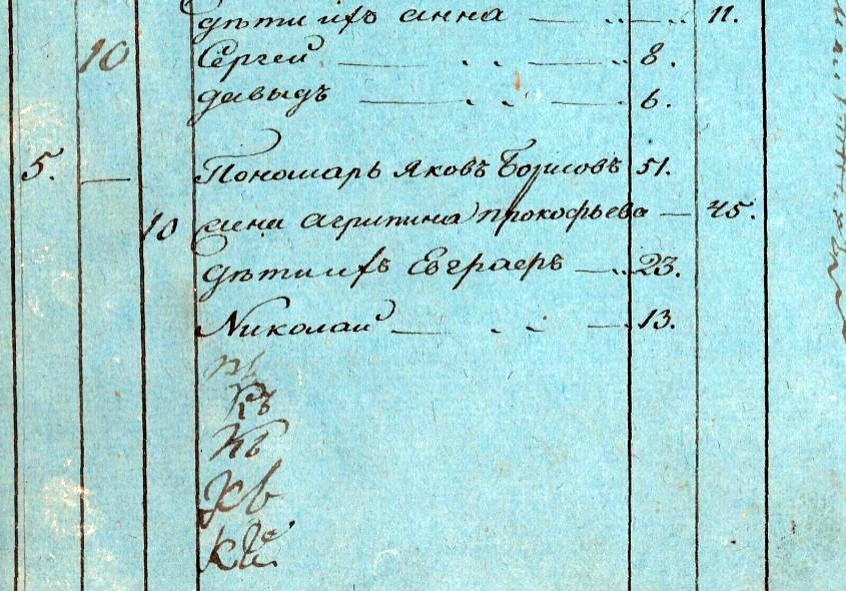 дѣти ихъ анна 11.
10 Сергей 8.
давыдъ 6.
5. Пономарь Яковъ Борисовъ 51.
10 агрипина прокофьева 45.
дѣти ихъ Евграфъ 23.
Николай 13.
Къ